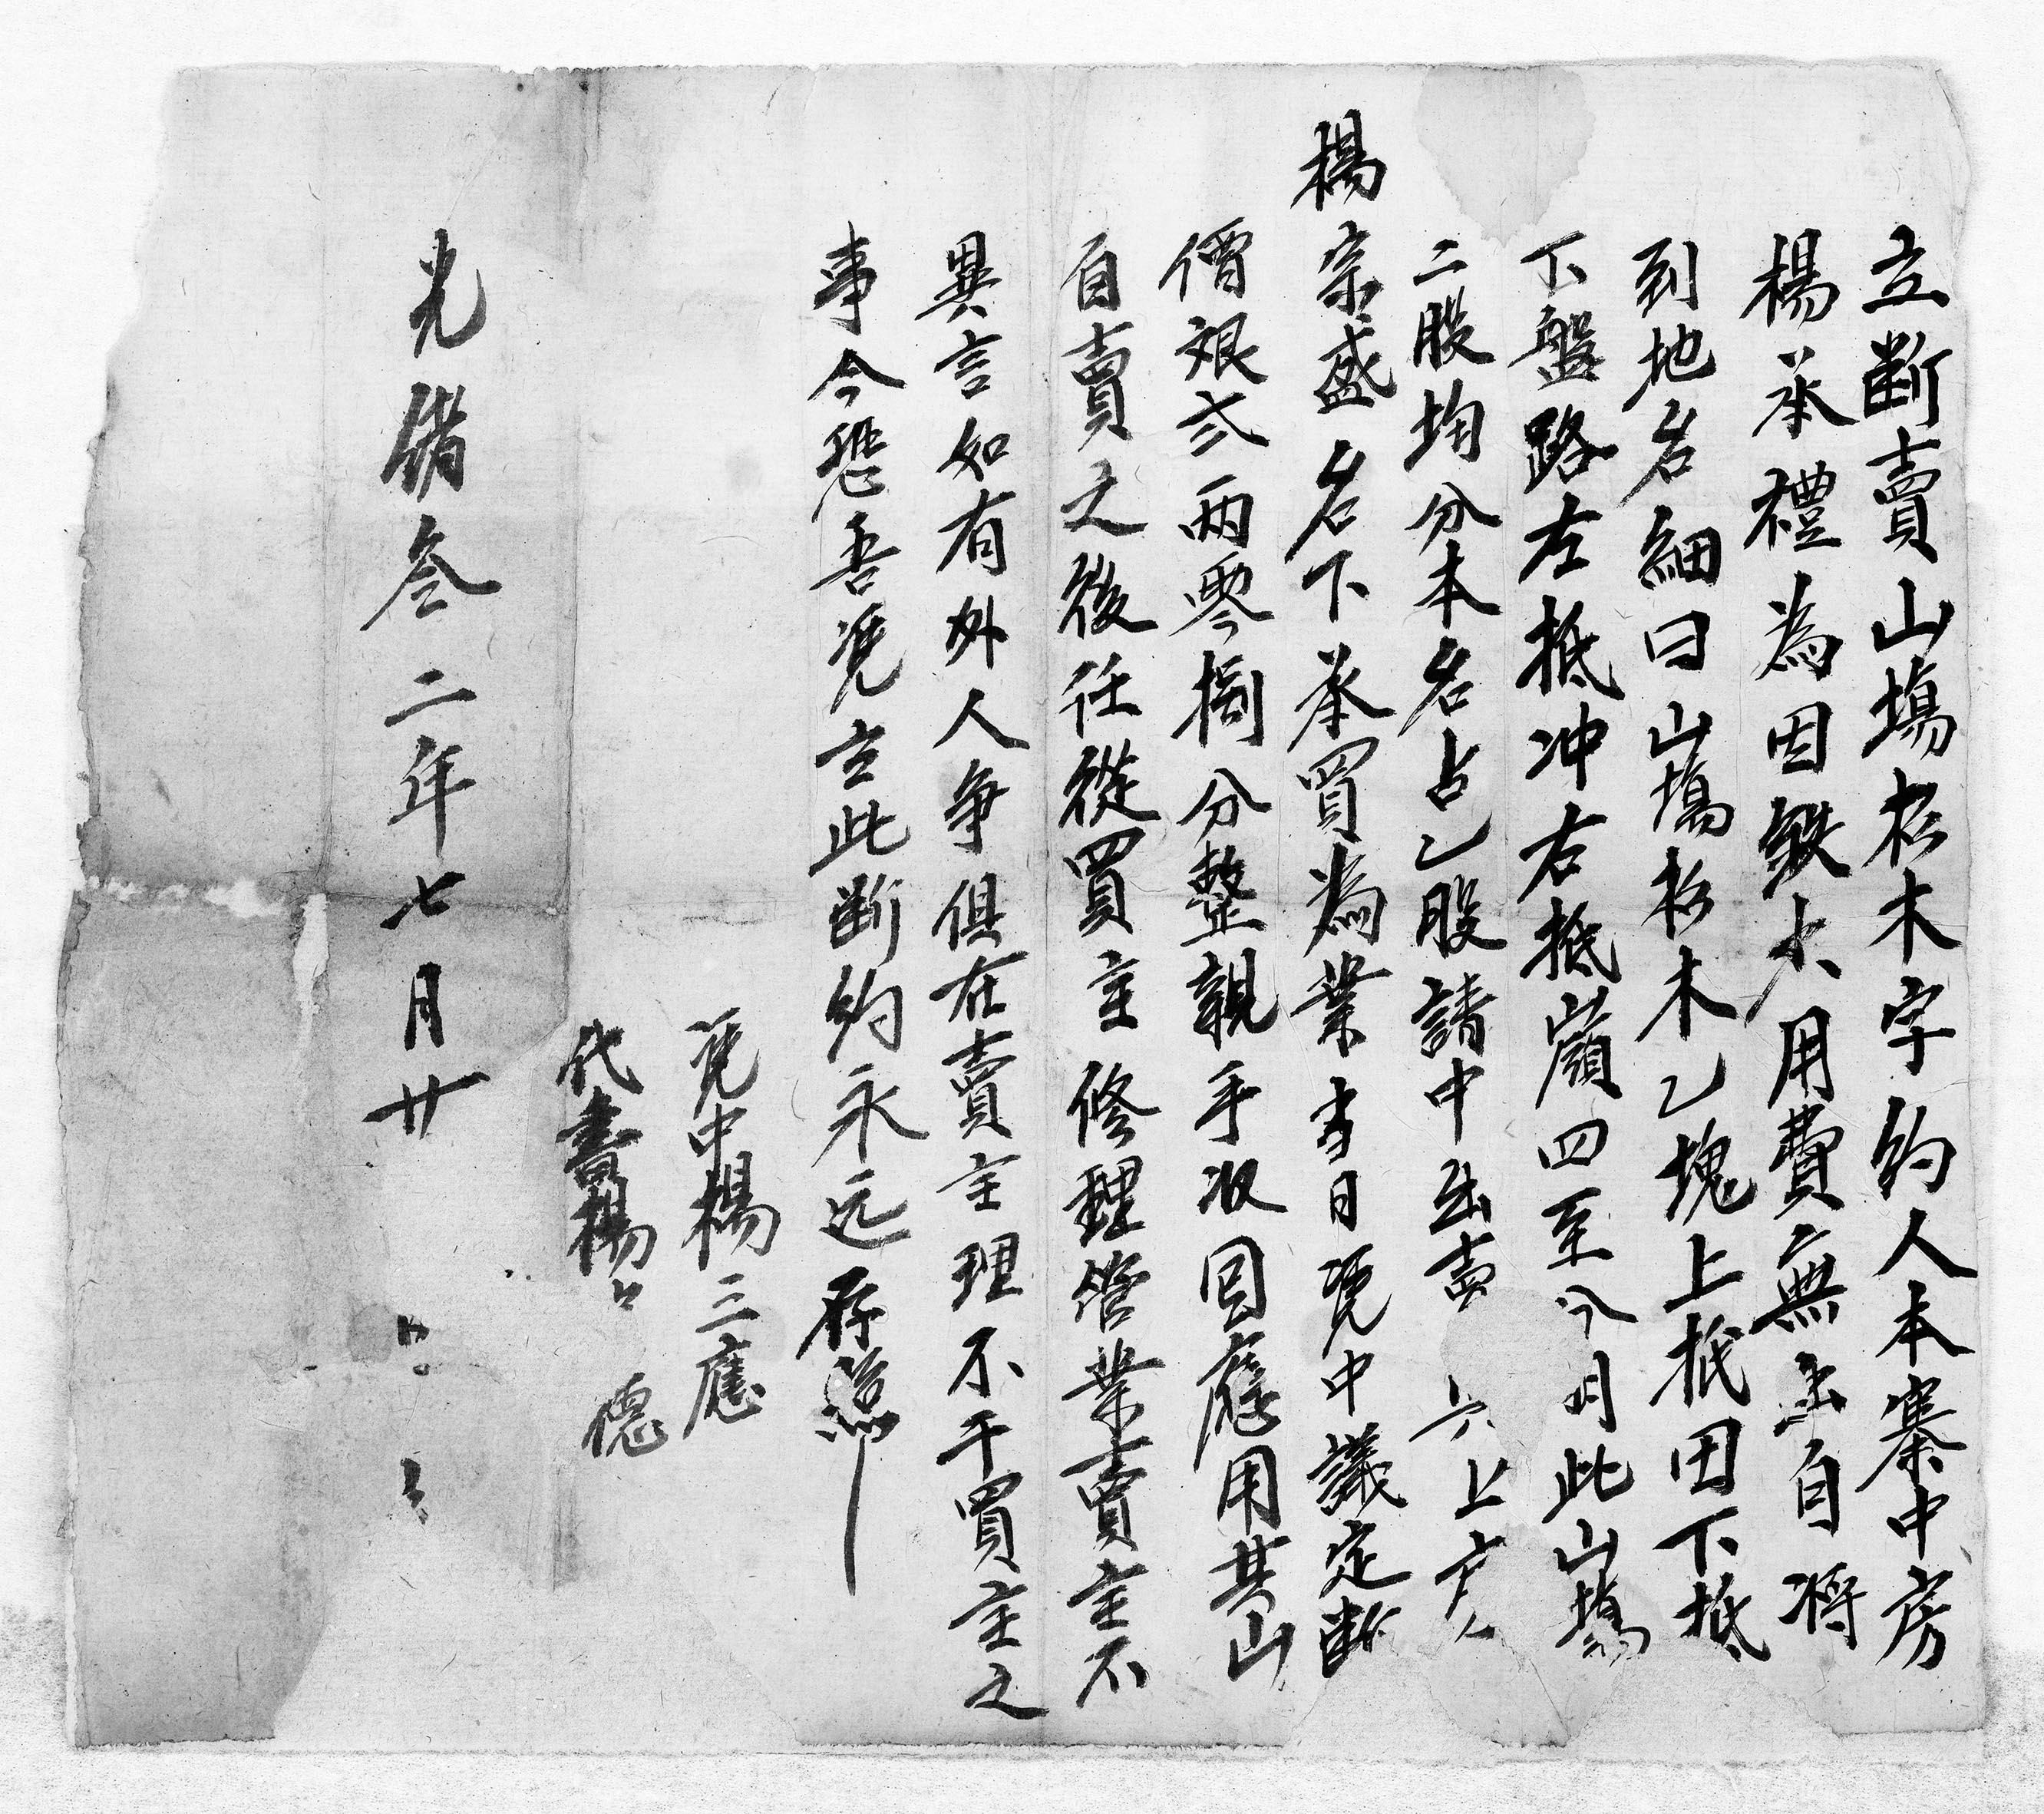 立斷賣山塲杉木字約人本寨中房
楊承禮為因缺少用費無出自將
到地名細曰山塲杉木乙塊上抵田下抵
下盤路左抵冲右抵嶺四至分明此山塲
二股均分本名占乙股請中出賣上
楊宗盛名下承買為業当日凴中議定斷
價艮弍兩零捌分整親手收回應用其山
自賣之後任從買主修理管業賣主不
異言如有外人争俱在賣主理不干買主之
事今恐吾凴立此斷約永远存照
凴中楊三應
代書楊 德
光緒叁二年七月廿